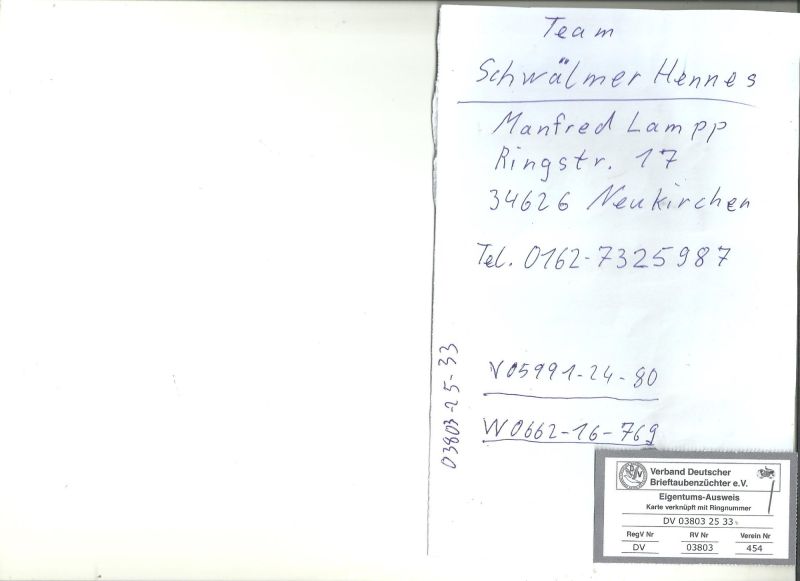 Team
Schwälmer Hennes
Manfred Lampp
Ringstr. 17
34626 Neukirchen
Tel. 0162-7325987
03803-25-33
V05991-24-80
W0662-16-769
Verband Deutscher
Brieftaubenzüchter e.V.
Eigentums-Ausweis
Karte verknüpft mit Ringnummer
DV 03803 25 33
RegV Nr RV Nr Verein Nr
DV 03803 454